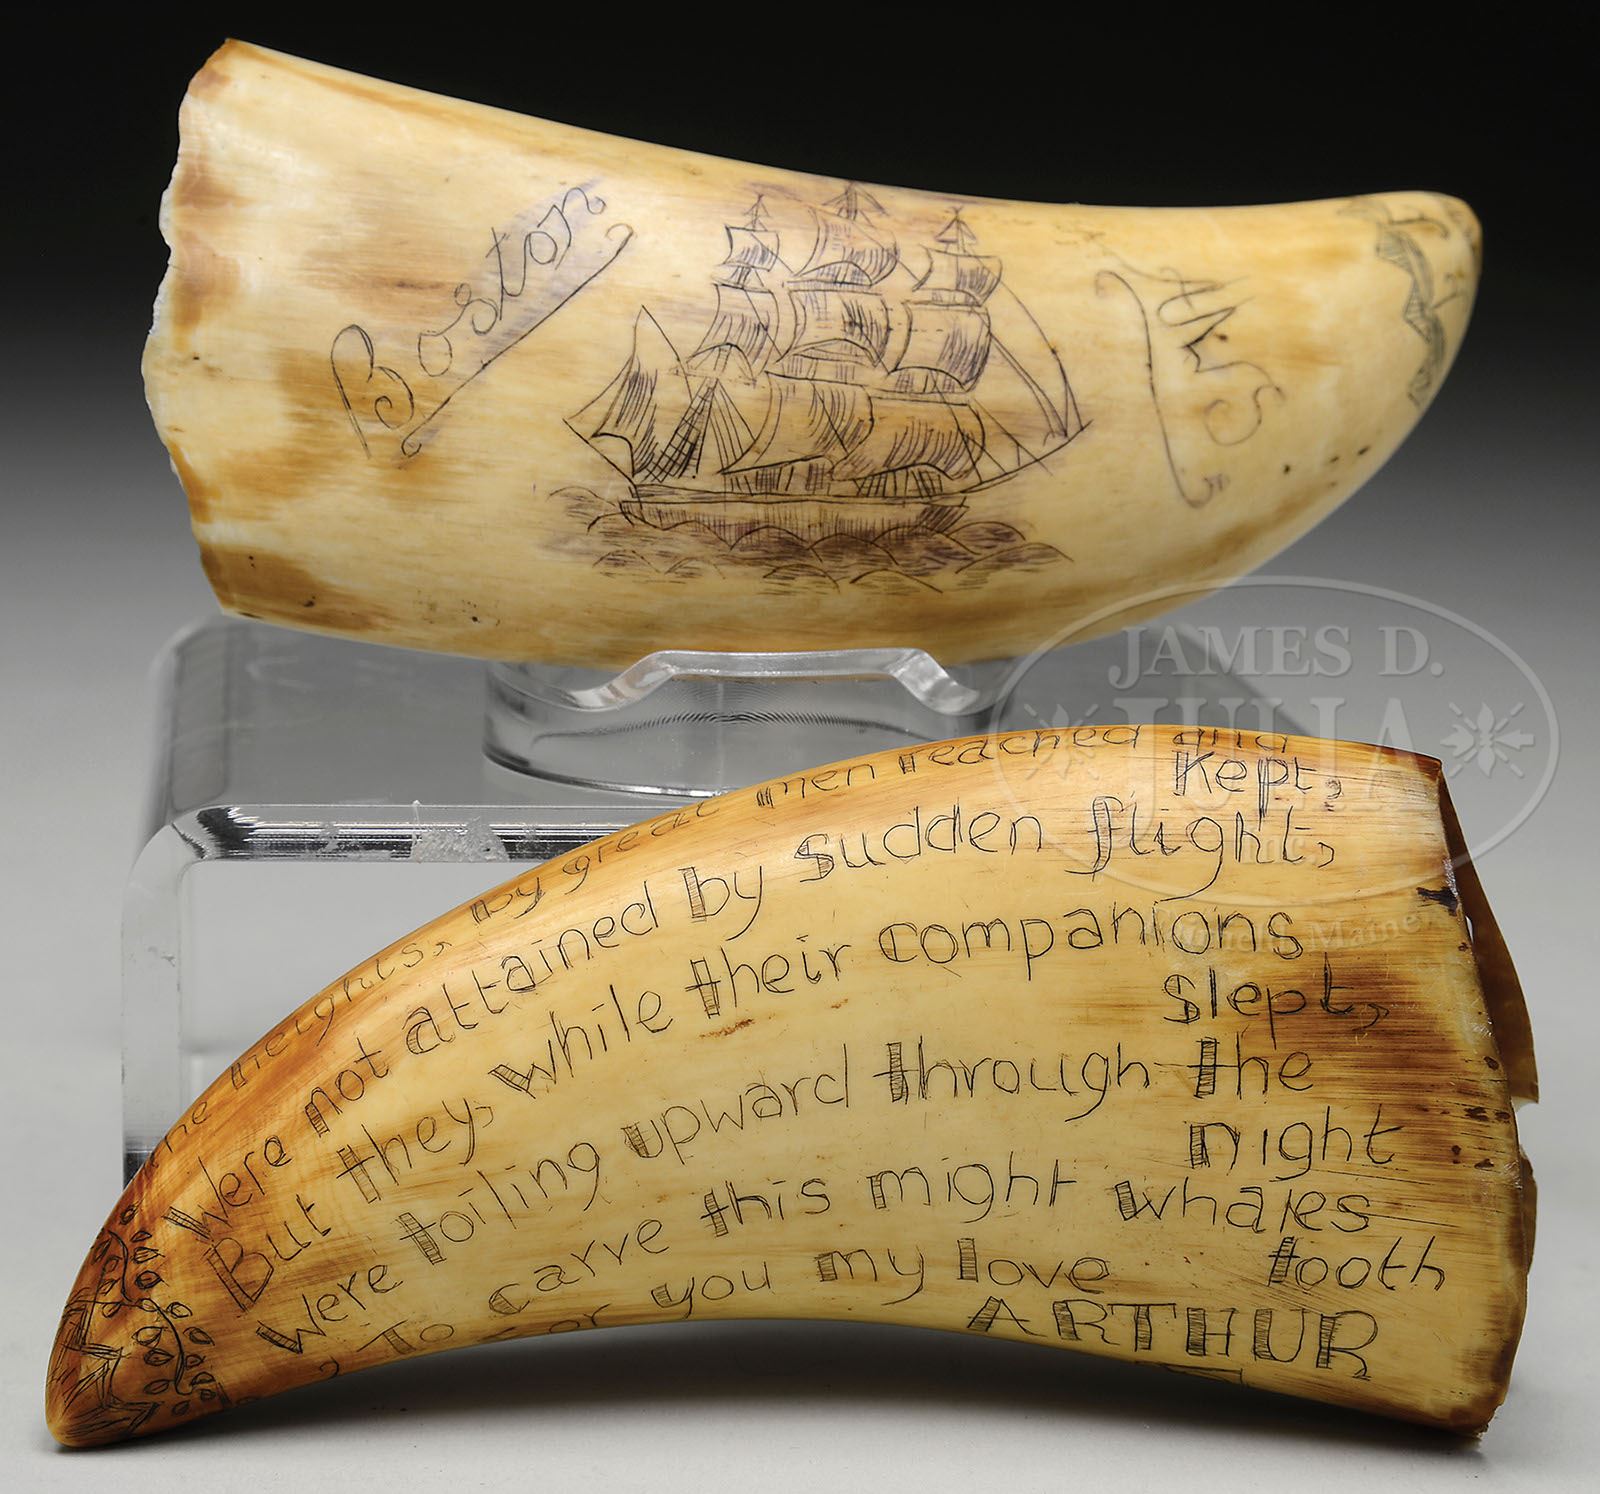 Boston
AWS
JAMES D.
JULIA
INC.
Maine
the heights, by great men reached and
Kept,
Were not attained by sudden flight,
But they, while their companions
slept,
Were toiling upward through the
night
To carve this might whales
tooth
for you my love
ARTHUR